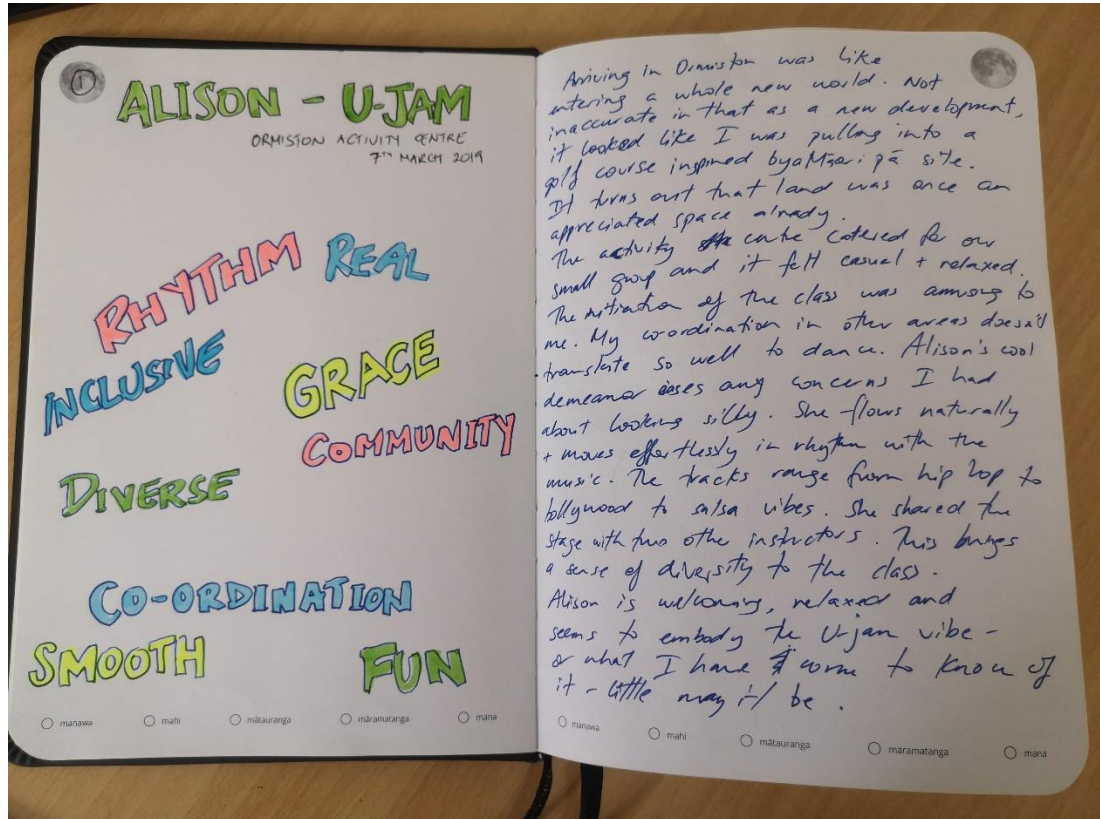 ①
ALISON - U-JAM
ORMISTON ACTIVITY CENTRE
7TH MARCH 2019
RHYTHM
REAL
INCLUSIVE
GRACE
COMMUNITY
DIVERSE
CO-ORDINATION
SMOOTH
FUN
manawa
mahi
mātauranga
māramatanga
mana
Arriving in Ormiston was like
entering a whole new world. Not
inaccurate in that as a new development,
it looked like I was pulling into a
golf course inspired by a Māori pā site.
It turns out that land was once an
appreciated space already.
The activity centre catered for our
small group and it felt casual + relaxed.
The initiation of the class was amusing to
me. My co-ordination in other areas doesn't
translate so well to dance. Alison's cool
demeanor eases any concerns I had
about looking silly. She flows naturally
+ moves effortlessly in rhythm with the
music. The tracks range from hip hop to
bollywood to salsa vibes. She shared the
stage with two other instructors. This brings
a sense of diversity to the class.
Alison is welcoming, relaxed and
seems to embody the U-jam vibe -
or what I have come to know of
it - little may it be.
manawa
mahi
mātauranga
māramatanga
mana